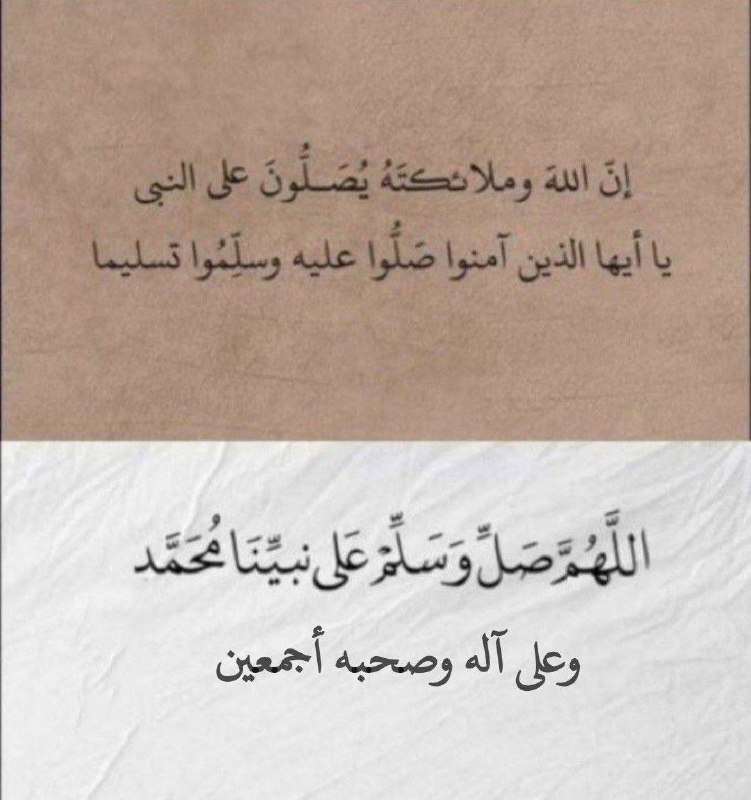 إنَّ اللهَ وملائكتَهُ يُصَلُّونَ على النبى
يا أيها الذين آمنوا صَلُّوا عليه وسلِّمُوا تسليما
اللَّهُمَّ صَلِّ وَسَلِّمْ عَلى نبيِّنَا مُحَمَّد
وعلى آله وصحبه أجمعين